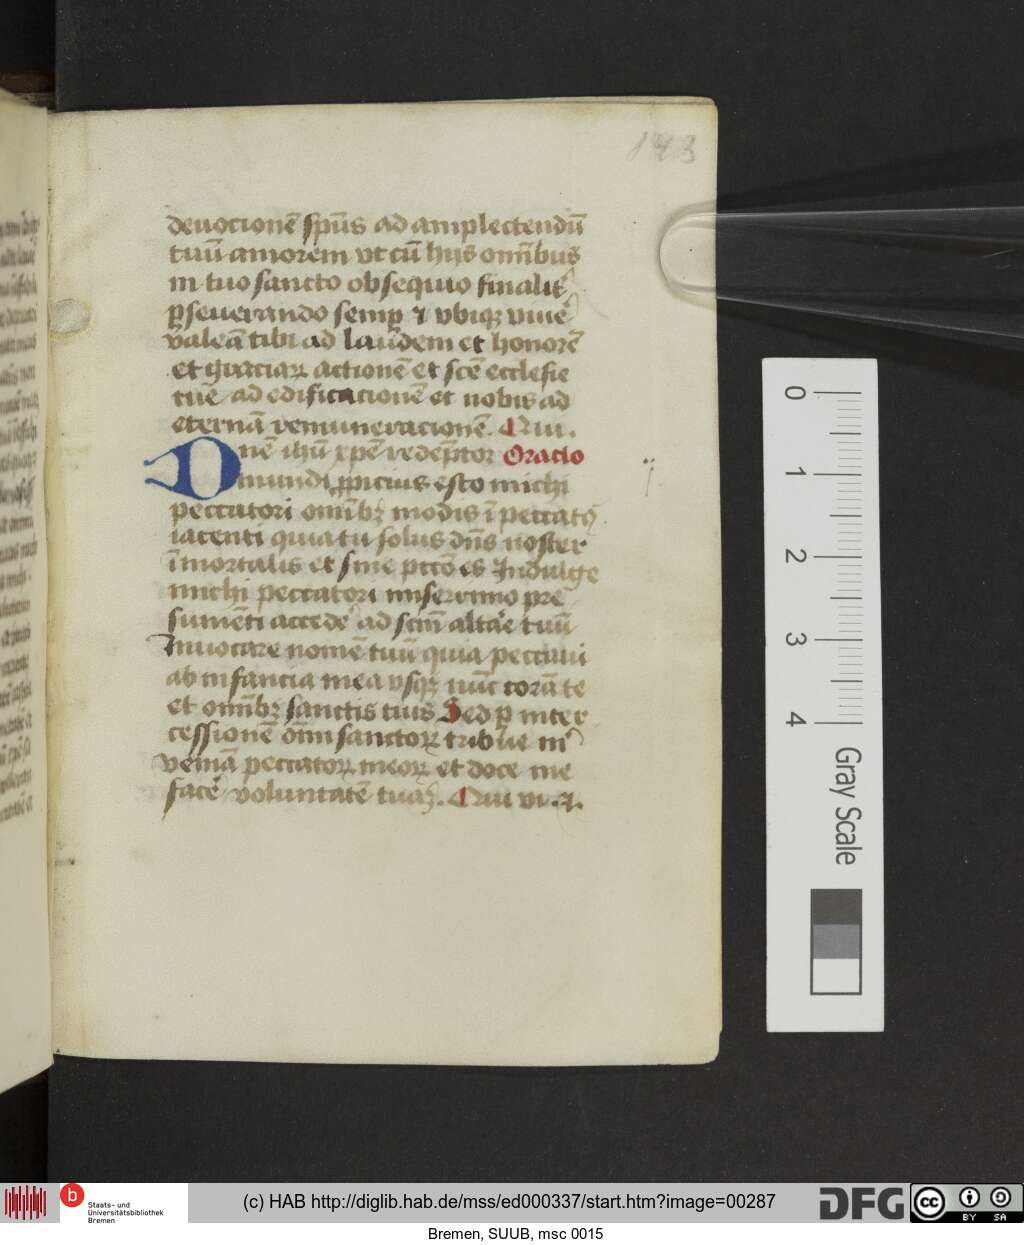 143
deuocionē spūs ad amplectendū
tuū amorem vt cū hijs om̄ibus
in tuo sancto obsequio finalit᷒
ꝑseuerando semꝑ ⁊ vbiqꝫ viuē
valeā tibi ad laudem et honorē
et gꝛaciaꝝ actionē et scē ecclesie
tuē ad edificacionē et nobis ad
eternā remuneracionē. Qui.
Dnē ihū xpē redēptor Oracio
mundi ꝓpicius esto michi
peccatori om̄ibꝫ modis ī peccatꝭ
iacenti quia tu solus dn̄s noster
īmortalis et sine pctō es Indulge
michi peccatori miserrimo pre
sumēti accedē ad scm̄ altāe tuū
Inuocare nomē tuū quia peccaui
ab infancia mea vsqꝫ nūc corā te
et om̄ibꝫ sanctis tuis Sed ꝑ inter
cessionē om̄i sanctoꝝ tribue mͥ
veniā peccatoꝝ meoꝝ et doce me
facē voluntatē tuaꝫ. Qui vi. ⁊.
0
1
2
3
4
Gray Scale
Staats- und
Universitätsbibliothek
Bremen
(c) HAB http://diglib.hab.de/mss/ed000337/start.htm?image=00287
DFG
cc BY SA
Bremen, SUUB, msc 0015